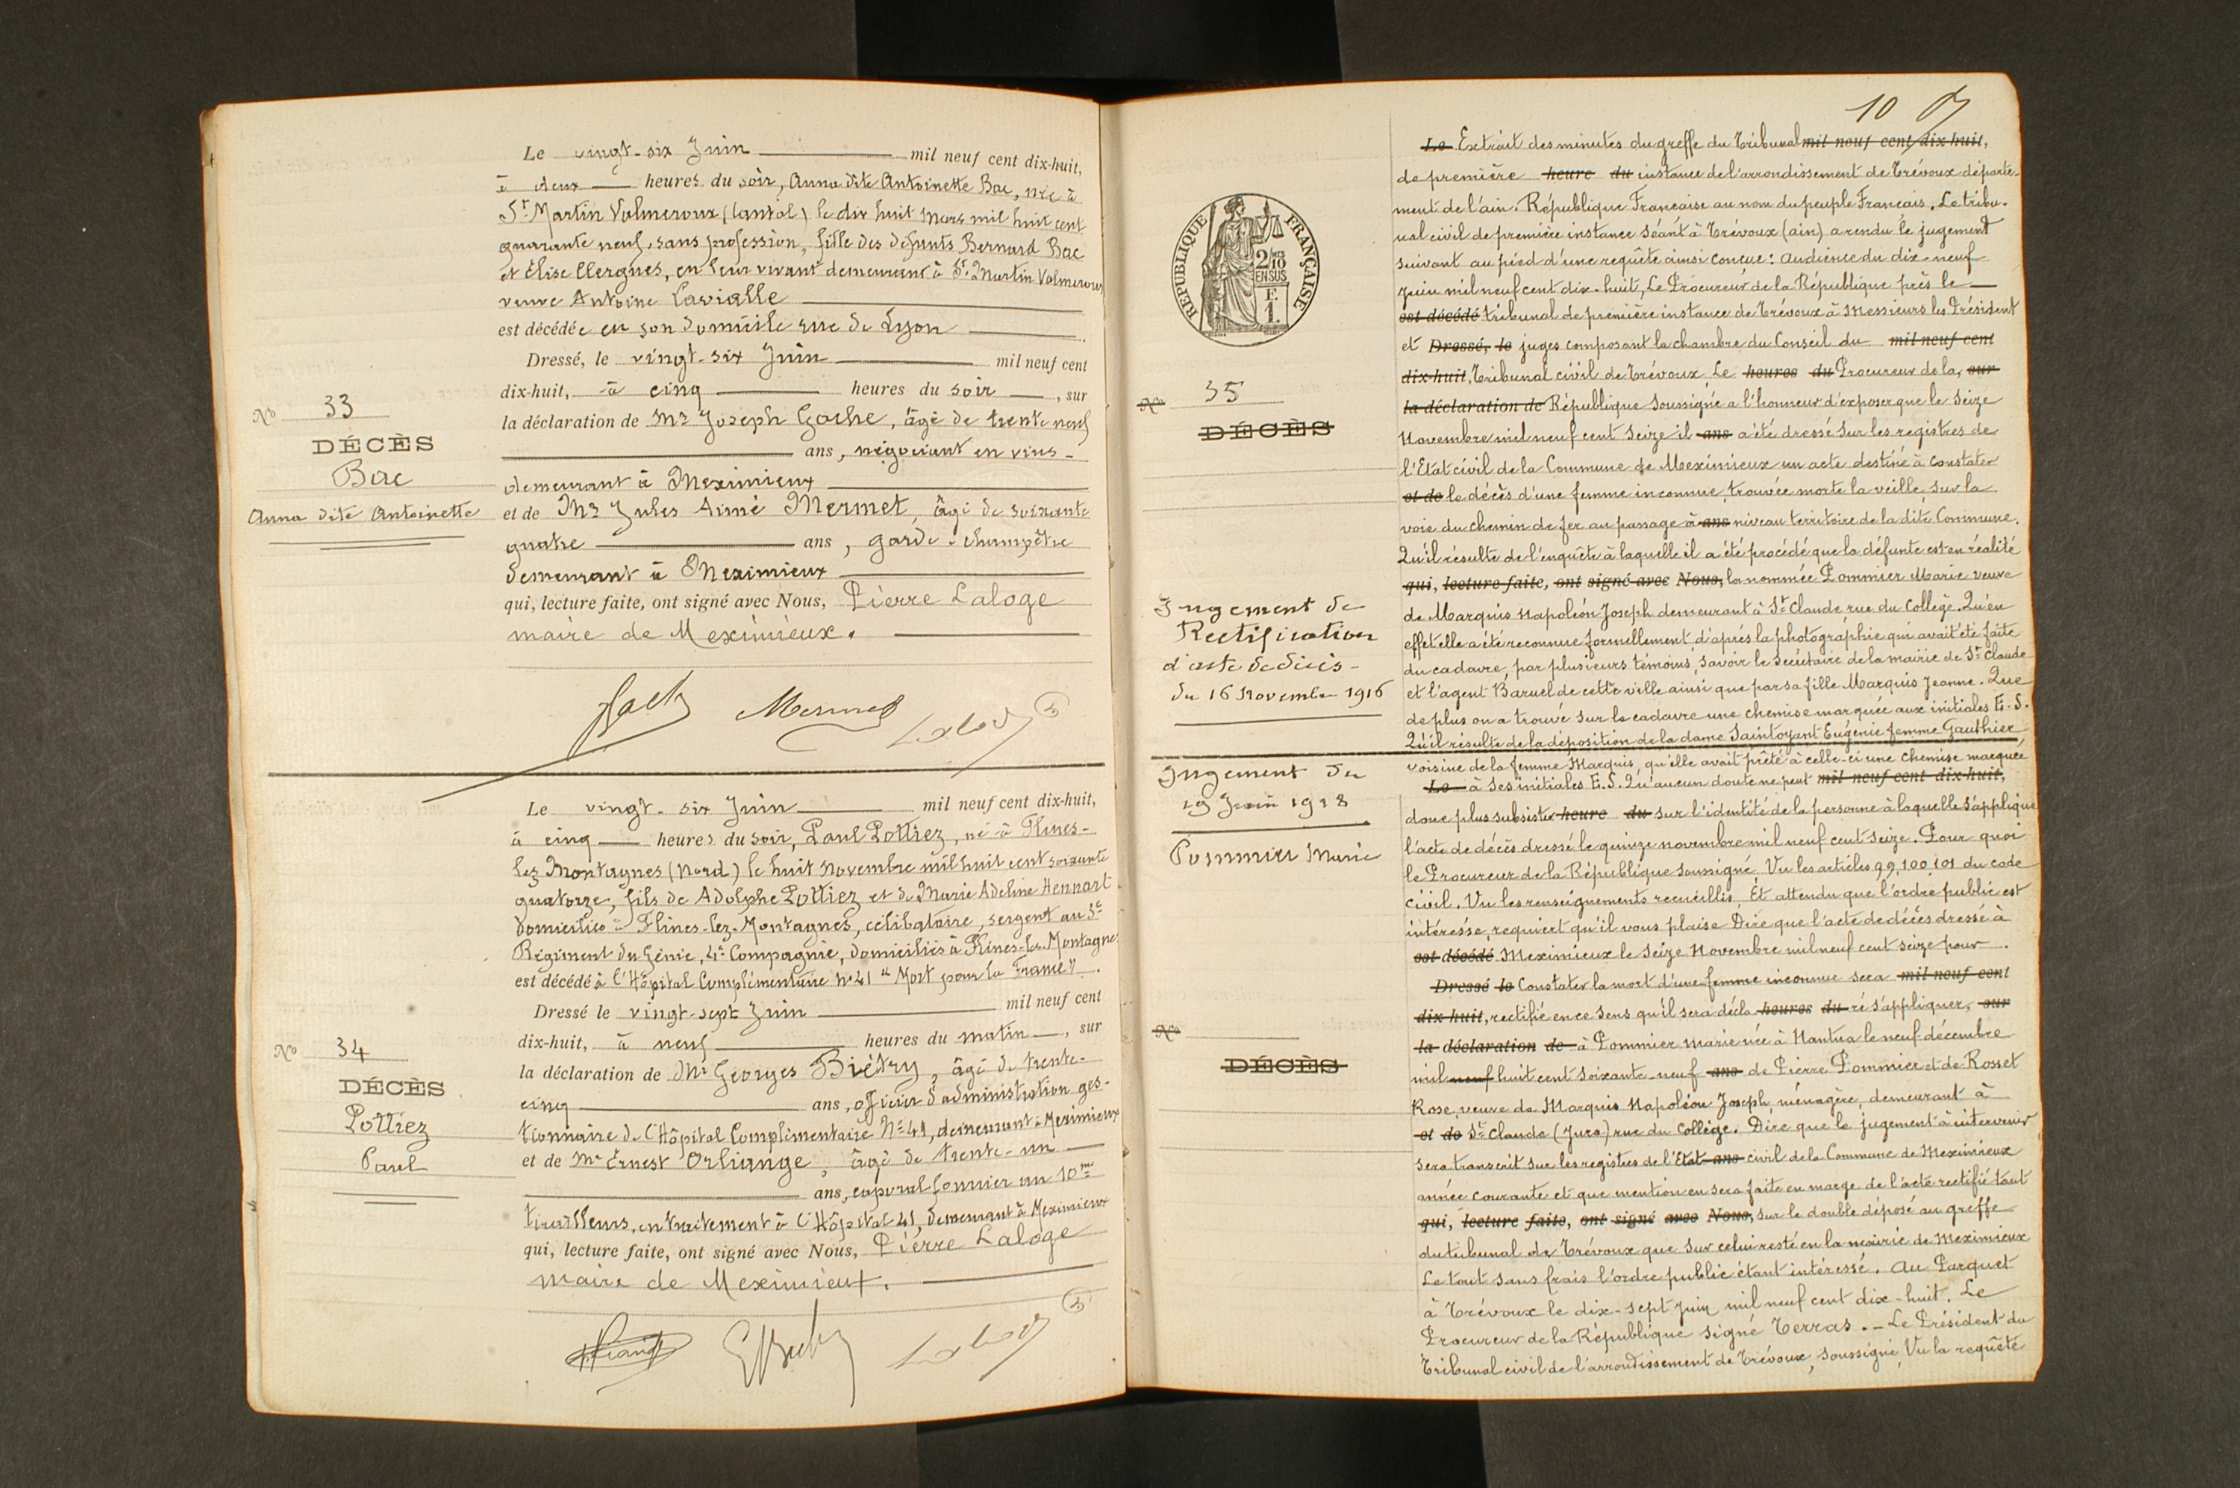 Le vingt-six Juin mil neuf cent dix-huit,
à deux heures du soir, Anna dite Antoinette Bac, née à
St Martin Valmeroux (Cantal) le dix huit Mars mil huit cent
quarante neuf, sans profession, fille des défunts Bernard Bac
et Élise Clergnes, en leur vivant demeurant à St Martin Valmeroux
veuve Antoine Lavialle
est décédée en son domicile rue de Lyon
Dressé, le vingt-six Juin mil neuf cent
dix-huit, à cinq heures du soir, sur
No 33
la déclaration de Mr Joseph Goche, âgé de trente neuf
DÉCÈS
ans, négociant en vins
Bac
demeurant à Meximieux
Anna dite Antoinette
et de Mr Jules Aimé Mermet, âgé de soixante
quatre ans, garde-champêtre
demeurant à Meximieux
qui, lecture faite, ont signé avec Nous, Pierre Laloge
maire de Meximieux.
Le vingt-six Juin mil neuf cent dix-huit,
à cinq heures du soir, Paul Pottiez, né à Flines-
lez Montagnes (Nord) le huit Novembre mil huit cent soixante
quatorze, fils de Adolphe Pottiez et de Marie Adeline Hennart
domiciliés à Flines-lez-Montagnes, célibataire, sergent au
Régiment du Génie, 4e Compagnie, domicilié à Flines-lez-Montagnes
est décédé à l'Hôpital Complémentaire No 41 "Mort pour la France".
Dressé le vingt-sept Juin mil neuf cent
No 34
dix-huit, à neuf heures du matin, sur
DÉCÈS
la déclaration de Mr Georges Biétry, âgé de trente-
cinq ans, officier d'administration ges-
Pottiez
tionnaire de l'Hôpital Complémentaire No 41, demeurant à Meximieux
Paul
et de Mr Ernest Orliange, âgé de trente-un
ans, caporal fourrier au 10me
tirailleurs, en traitement à l'Hôpital 41, demeurant à Meximieux
qui, lecture faite, ont signé avec Nous, Pierre Laloge
maire de Meximieux.
10
RÉPUBLIQUE FRANÇAISE
2/10
EN SUS
F.
1.
No 35
DÉCÈS
Jugement de
Rectification
d'acte de décès
du 16 Novembre 1916
Jugement du
19 Juin 1918
Pommier Marie
No
DÉCÈS
Le Extrait des minutes du greffe du Tribunal mil neuf cent dix-huit,
de première heure du instance de l'arrondissement de Trévoux départe-
ment de l'ain. République Française au nom du peuple Français. Le tribu-
nal civil de première instance séant à Trévoux (ain) a rendu le jugement
suivant au pied d'une requête ainsi conçue : audience du dix-neuf
Juin mil neuf cent dix-huit, Le Procureur de la République près le
est décédé tribunal de première instance de Trévoux à Messieurs les Président
et Dressé, le juges composant la chambre du Conseil du mil neuf cent
dix-huit, Tribunal civil de Trévoux, Le heures du Procureur de la, sur
la déclaration de République soussigné a l'honneur d'exposer que le Seize
Novembre mil neuf cent Seize il ans a été dressé sur les registres de
l'Etat civil de la Commune de Meximieux un acte destiné à constater
et de le décès d'une femme inconnue, trouvée morte la veille, sur la
voie du chemin de fer au passage à ans niveau territoire de la dite Commune.
Qu'il résulte de l'enquête à laquelle il a été procédé que la défunte est en réalité
qui, lecture faite, ont signé avec Nous, la nommée Pommier Marie veuve
de Marquis Napoléon Joseph demeurant à St Claude rue du Collège. Qu'en
effet elle a été reconnue formellement, d'après la photographie qui avait été faite
du cadavre, par plusieurs témoins, savoir le secrétaire de la mairie de St Claude
et l'agent Baruel de cette ville ainsi que par sa fille Marquis Jeanne. Que
de plus on a trouvé sur le cadavre une chemise marquée aux initiales E. S.
Qu'il résulte de la déposition de la dame Saintoyant Eugénie femme Gauthier
voisine de la femme Marquis, qu'elle avait prêté à celle-ci une chemise marquée
Le à ses initiales E. S. Qu'aucun doute ne peut mil neuf cent dix-huit,
donc plus subsister heure du sur l'identité de la personne à laquelle s'applique
l'acte de décès dressé le quinze novembre mil neuf cent Seize. Pour quoi
le Procureur de la République soussigné, Vu les articles 99, 100, 101 du code
civil. Vu les renseignements recueillis, Et attendu que l'ordre public est
intéressé, requiert qu'il vous plaise Dire que l'acte de décès dressé à
est décédé Meximieux le Seize Novembre mil neuf cent seize pour
Dressé le Constater la mort d'une femme inconnue sera mil neuf cent
dix huit, rectifié en ce sens qu'il sera décla heures du ré s'appliquer, sur
la déclaration de à Pommier marie née à Nantua le neuf décembre
mil neuf huit cent soixante-neuf ans de Pierre Pommier et de Rosset
Rose, veuve de Marquis Napoléon Joseph, ménagère, demeurant à
et de St Claude (Jura) rue du Collège. Dire que le jugement à intervenir
sera transcrit sur les registres de l'Etat ans civil de la Commune de Meximieux
année courante et que mention en sera faite en marge de l'acte rectifié tant
qui, lecture faite, ont signé avec Nous, sur le double déposé au greffe
du tribunal de Trévoux que sur celui resté en la mairie de Meximieux
Le tout sans frais l'ordre public étant intéressé. Au Parquet
à Trévoux le dix-sept juin mil neuf cent dix-huit. Le
Procureur de la République signé Terras. - Le Président du
Tribunal civil de l'arrondissement de Trévoux, soussigné, Vu la requête